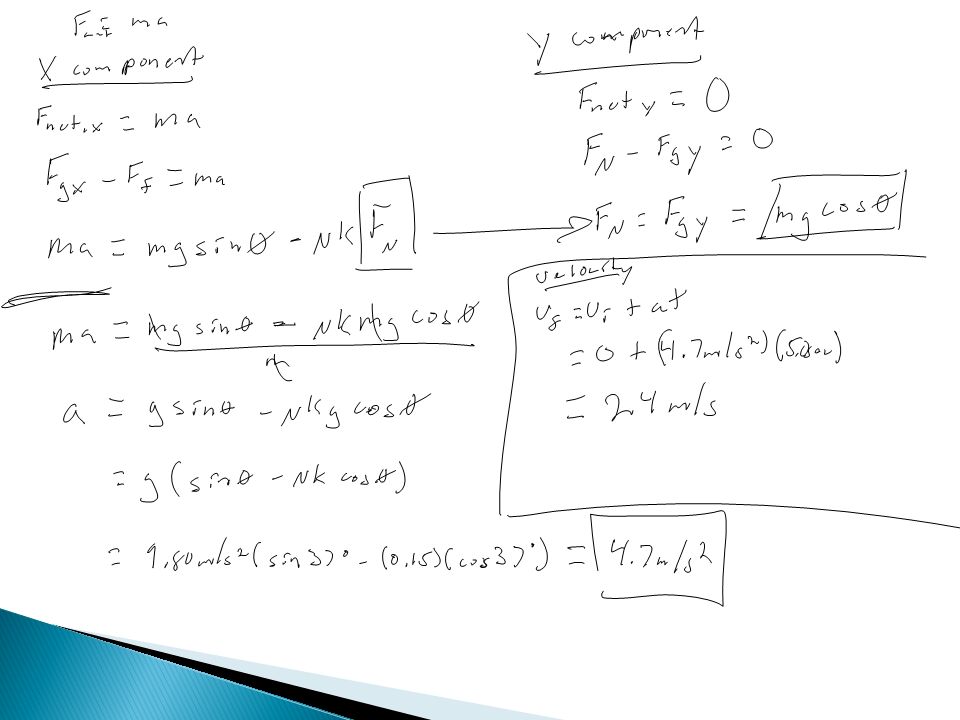 Fnet = ma
X component
Fnet,x = ma
Fgx - Ff = ma
ma = mg sinθ - μk FN
ma = mg sinθ - μk mg cosθ
m
a = g sinθ - μk g cosθ
= g (sinθ - μk cosθ)
= 9.80 m/s² (sin 37° - (0.15)(cos 37°) = 4.7 m/s²
Y component
Fnet y = 0
FN - Fgy = 0
FN = Fgy = mg cosθ
velocity
vf = vi + at
= 0 + (4.7 m/s²)
= 24 m/s